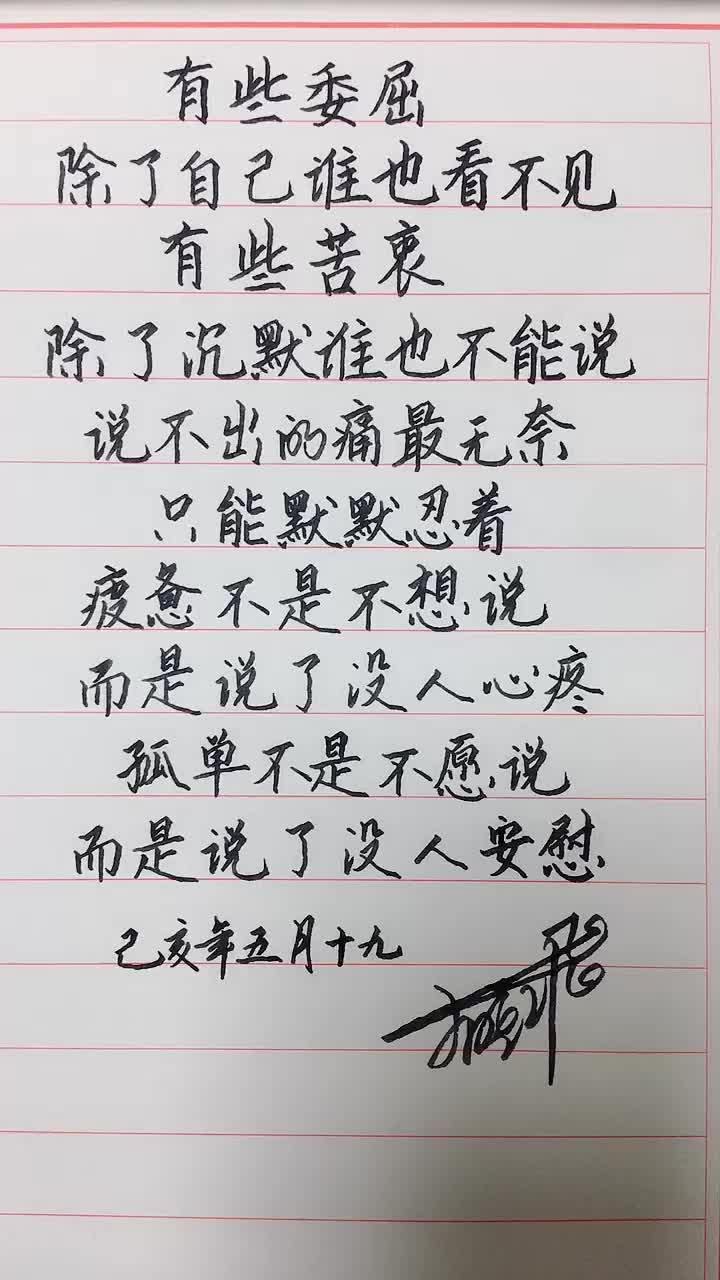 有些委屈
除了自己谁也看不见
有些苦衷
除了沉默谁也不能说
说不出的痛最无奈
只能默默忍着
疲惫不是不想说
而是说了没人心疼
孤单不是不愿说
而是说了没人安慰
己亥年五月十九